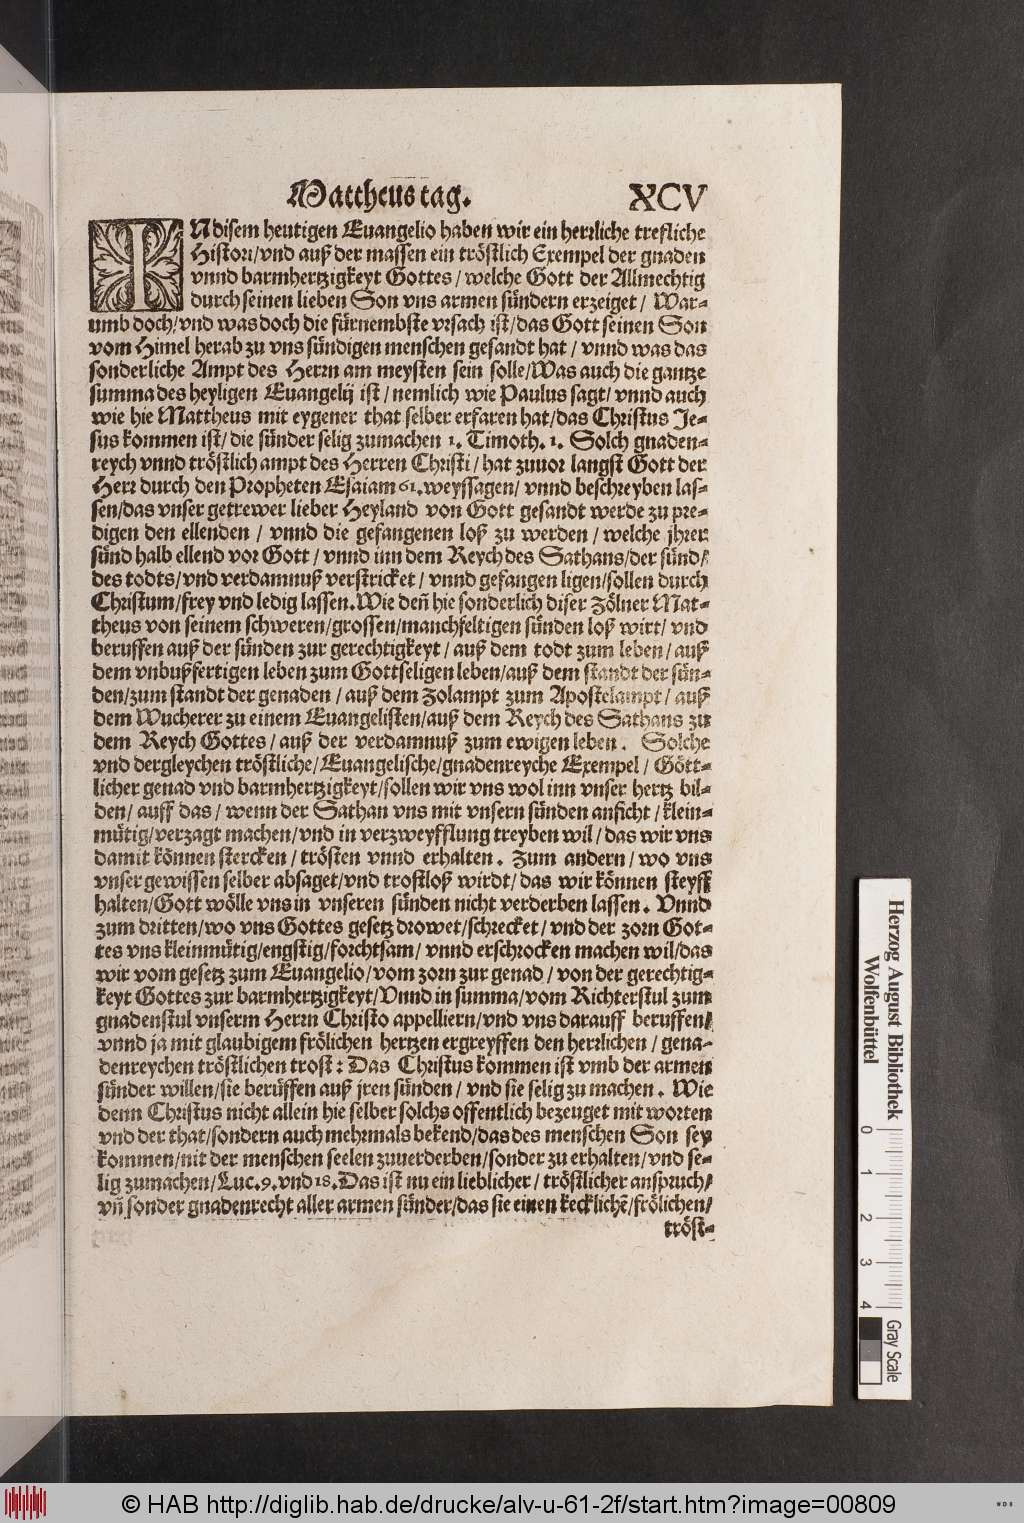 Mattheus tag. XCV
INdisem heutigen Euangelio haben wir ein herrliche trefliche
Histori/vnd auß der massen ein tröstlich Exempel der gnaden
vnnd barmhertzigkeyt Gottes/welche Gott der Allmechtig
durch seinen lieben Son vns armen sündern erzeiget/ War-
umb doch/vnd was doch die fürnembste vrsach ist/das Gott seinen Son
vom Himel herab zu vns sündigen menschen gesandt hat/ vnnd was das
sonderliche Ampt des Herrn am meysten sein solle/Was auch die gantze
summa des heyligen Euangelij ist/nemlich wie Paulus sagt/ vnnd auch
wie hie Mattheus mit eygener that selber erfaren hat/das Christus Je-
sus kommen ist/die sünder selig zumachen 1. Timoth. 1. Solch gnaden-
reych vnnd tröstlich ampt des Herren Christi/hat zuuor langst Gott der
Herr durch den Propheten Esaiam 61. weyssagen/ vnnd beschreyben las-
sen/das vnser getrewer lieber Heyland von Gott gesandt werde zu pre-
digen den ellenden/ vnnd die gefangenen loß zu werden/welche jhrer
sünd halb ellend vor Gott/vnnd inn dem Reych des Sathans/der sünd/
des todts/vnd verdamnuß verstricket/vnnd gefangen ligen/sollen durch
Christum/frey vnd ledig lassen. Wie deñ hie sonderlich diser Zölner Mat-
theus von seinem schweren/grossen/manchfeltigen sünden loß wirt/ vnd
beruffen auß der sünden zur gerechtigkeyt/auß dem todt zum leben/auß
dem vnbußfertigen leben zum Gottseligen leben/auß dem standt der sün-
den/zum standt der genaden/auß dem Zolampt zum Apostelampt/auß
dem Wucherer zu einem Euangelisten/auß dem Reych des Sathans zu
dem Reych Gottes/auß der verdamnuß zum ewigen leben. Solche
vnd dergleychen tröstliche/Euangelische/gnadenreyche Exempel/Gött-
licher genad vnd barmhertzigkeyt/sollen wir vns wol inn vnser hertz bil-
den/auff das/wenn der Sathan vns mit vnsern sünden anficht/klein-
mütig/verzagt machen/vnd in verzweyfflung treyben wil/das wir vns
damit können stercken/trösten vnnd erhalten. Zum andern/wo vns
vnser gewissen selber absaget/vnd trostloß wirdt/das wir können steyff
halten/Gott wölle vns in vnseren sünden nicht verderben lassen. Vnnd
zum dritten/wo vns Gottes gesetz drowet/schrecket/vnd der zorn Got-
tes vns kleinmütig/engstig/forchtsam/vnnd erschrocken machen wil/das
wir vom gesetz zum Euangelio/vom zorn zur genad/von der gerechtig-
keyt Gottes zur barmhertzigkeyt/Vnnd in summa/vom Richterstul zum
gnadenstul vnserm Herrn Christo appelliern/vnd vns darauff beruffen/
vnnd ja mit glaubigem frölichen hertzen ergreyffen den herrlichen/gena-
denreychen tröstlichen trost: Das Christus kommen ist vmb der armen
sünder willen/sie berüffen auß jren sünden/vnd sie selig zu machen. Wie
denn Christus nicht allein hie selber solchs offentlich bezeuget mit worten
vnd der that/sondern auch mehrmals bekend/das des menschen Son sey
kommen/nit der menschen seelen zuuerderben/sonder zu erhalten/vnd se-
lig zumachen/Luc. 9. vnd 18. Das ist nu ein lieblicher/tröstlicher anspruch/
vñ sonder gnadenrecht aller armen sünder/das sie einen kecklichẽ/frölichen/
tröst-
Herzog August Bibliothek
Wolfenbüttel
0 1 2 3 4
Gray Scale
© HAB http://diglib.hab.de/drucke/alv-u-61-2f/start.htm?image=00809